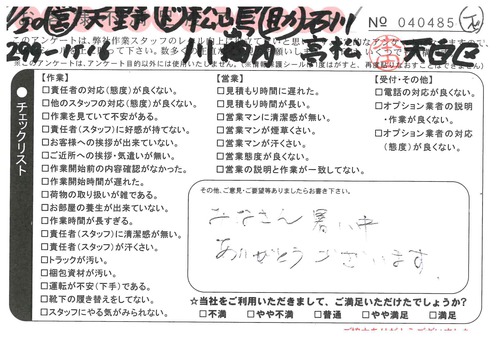 1/30(営)天野(ピ)松山長(助)石川
Nº 040485
299-1716 11 稲内 高松 天白区
【作業】
□責任者の対応(態度)が良くない。
□他のスタッフの対応(態度)が良くない。
□作業を見ていて不安がある。
□責任者(スタッフ)に好感が持てない。
□お客様への挨拶が出来ていない。
□ご近所への挨拶・気遣いが無い。
□作業開始前の内容確認がなかった。
□作業開始時間が遅れた。
□荷物の取り扱いが雑である。
□お部屋の養生が出来ていない。
□作業時間が長すぎる。
□責任者(スタッフ)に清潔感が無い。
□責任者(スタッフ)が汗くさい。
□トラックが汚い。
□梱包資材が汚い。
□運転が不安(下手)である。
□靴下の履き替えをしてない。
□スタッフにやる気がみられない。
チェックリスト
【営業】
□見積もり時間に遅れた。
□見積もり時間が長い。
□営業マンに清潔感が無い。
□営業マンが煙草くさい。
□営業マンが汗くさい。
□営業態度が良くない。
□営業の説明と作業が一致してない。
【受付・その他】
□電話の対応が良くない。
□オプション業者の説明
・作業が良くない。
□オプション業者の対応
(態度)が良くない。
その他、ご意見・ご要望等ありましたらお書き下さい。
みなさん 暑い中
ありがとうございます。
☆当社をご利用いただきまして、ご満足いただけたでしょうか?
□不満 □やや不満 □普通 □やや満足 □満足